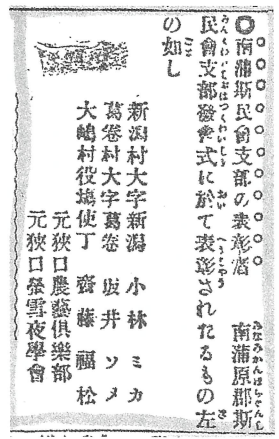 ◎南蒲斯民會支部の表彰者　南蒲原郡斯
民會支部發會式に於て表彰されたるもの左
の如し
新潟村大字新潟　小林ミカ
葛卷村大字葛卷　坂井ソメ
大嶋村役塲使丁　齋藤福松
元狹口農藝俱樂部
元狹口螢雪夜學會